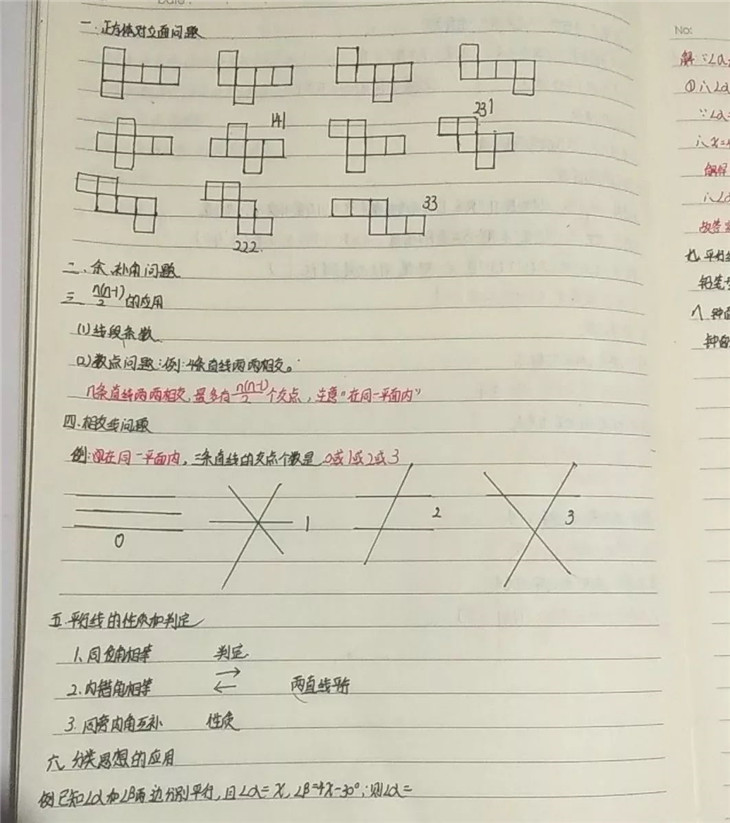 一.正方体对立面问题
141
231
33
222
二、余、补角问题
三 n(n-1)/2 的应用
(1)线段条数
(2)数点问题:例:4条直线两两相交。
n条直线两两相交,最多有n(n-1)/2个交点,注意"在同一平面内"
四.相交线问题
例:在同一平面内,三条直线的交点个数是 0或1或2或3
0
1
2
3
五.平行线的性质和判定
1.同位角相等 判定
2.内错角相等 两直线平行
3.同旁内角互补 性质
六.分类思想的应用
例 已知∠α和∠β两边分别平行,且∠α=x,∠β=4x-30°,则∠α=
No: